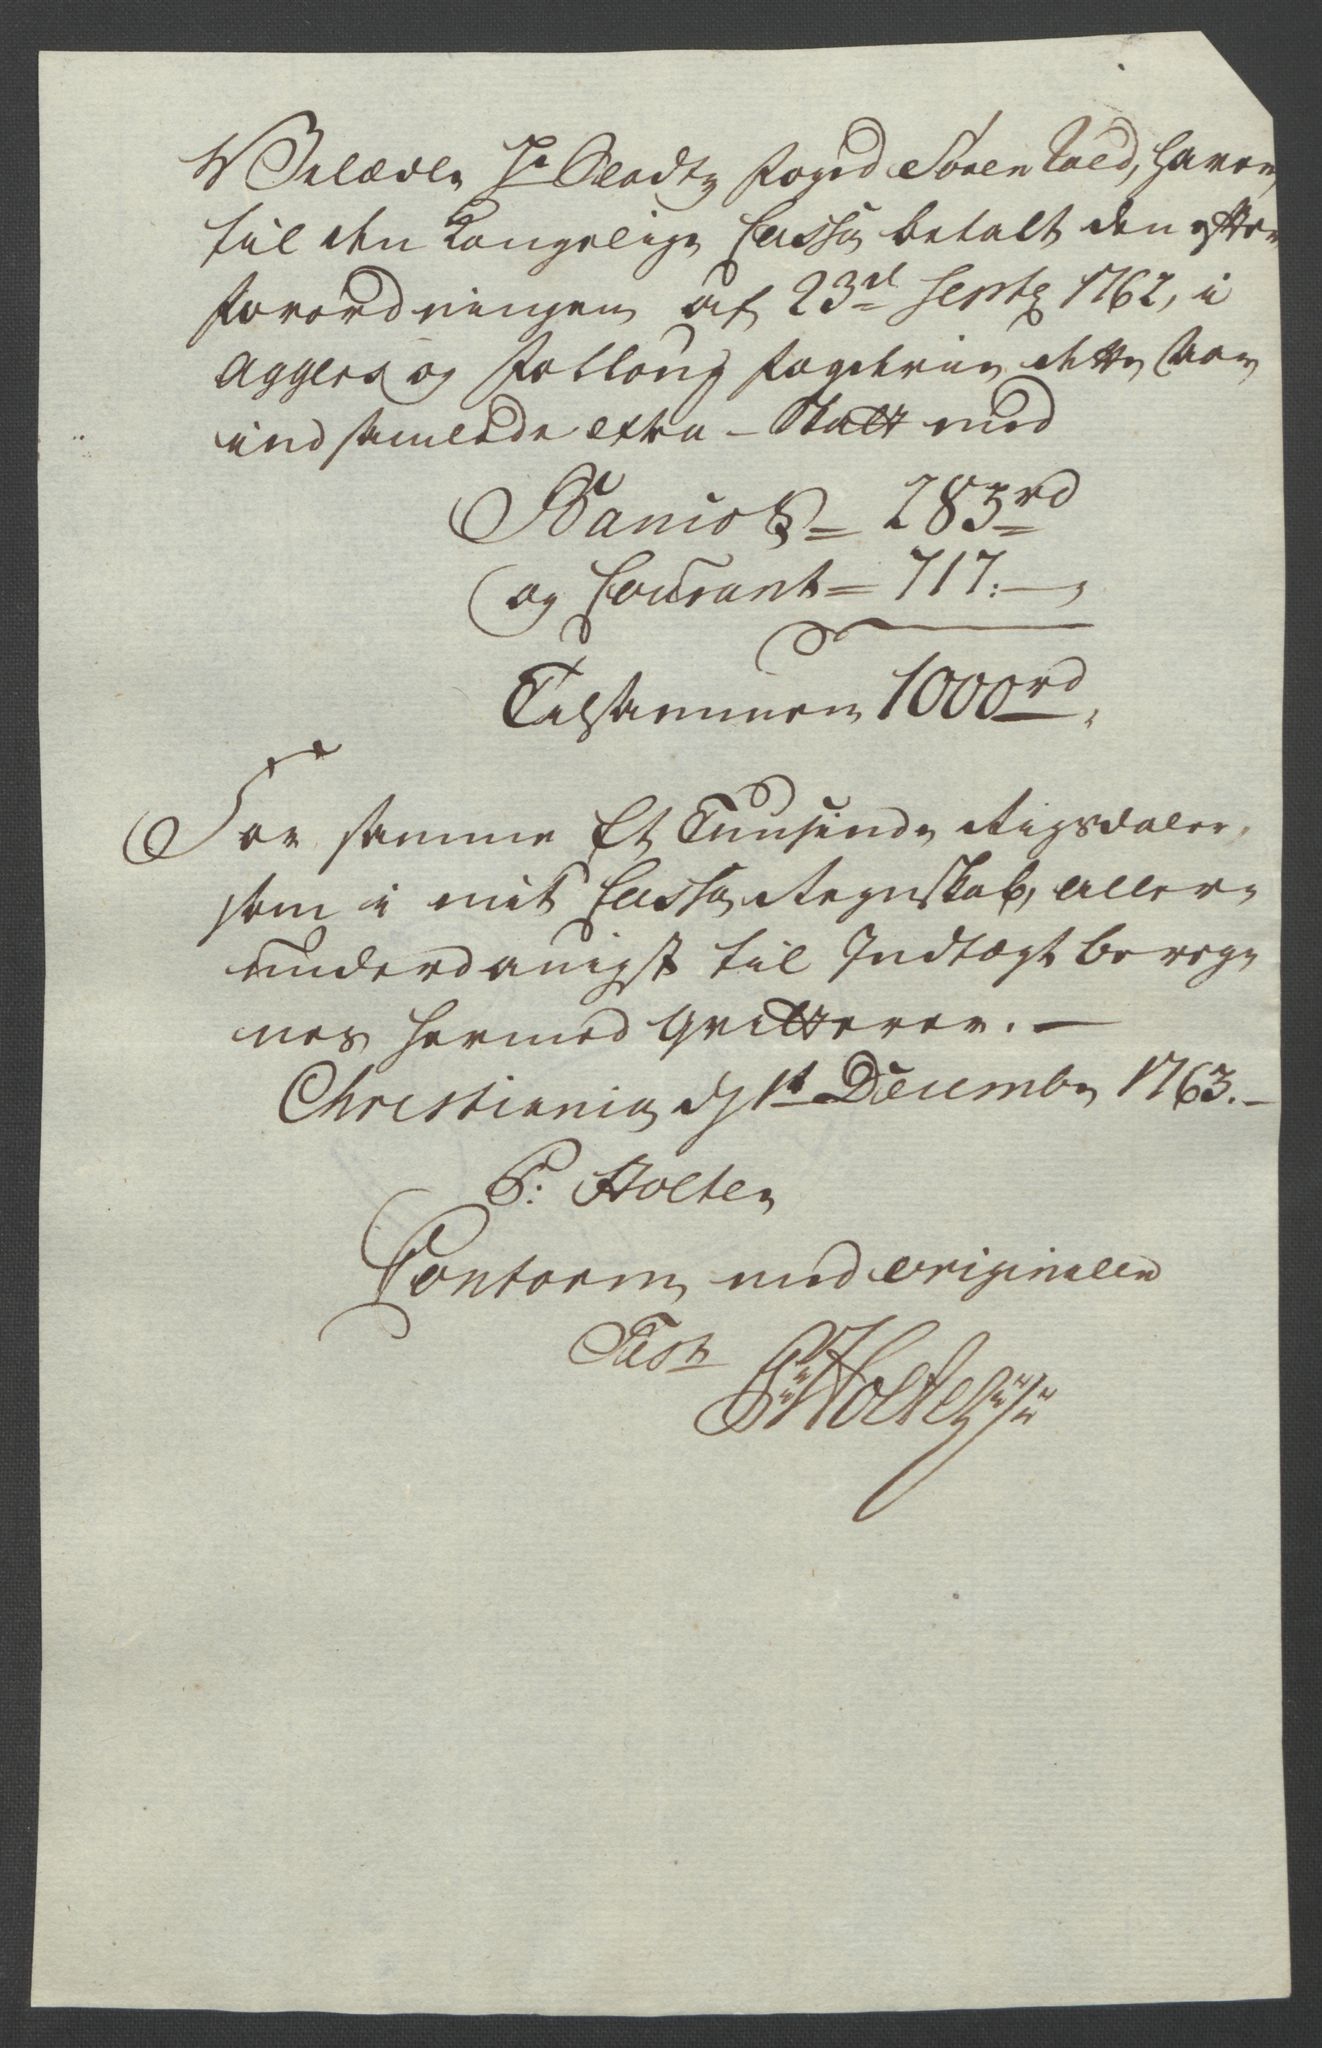 Velædle Hr Stadtz foged Søren Vold, haver
til den Kongelige Cassa betalt den efter
forordningen af 23d Septr 1762, i
Aggers og Follougs fogderie dette Aar
indsamlede extra-Skatt med
Banios = 283rd
og Courant = 717:—,
Tilsammen 1000rd,
For samme Et Tuusinde Rigsdaler,
som i mit Cassa Regnskab, aller-
underdanigst til Indtægt bereg-
nes hermed Qvitterer. —
Christiania d 1t Decembr 1763. —
P: Holten
Conform med originalen
Test
P: Holten